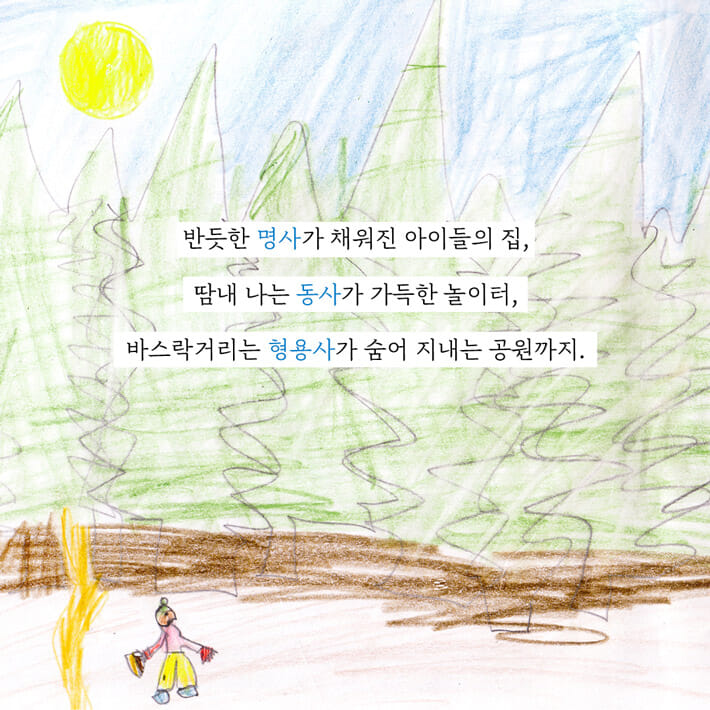 반듯한 명사가 채워진 아이들의 집,
땀내 나는 동사가 가득한 놀이터,
바스락거리는 형용사가 숨어 지내는 공원까지.